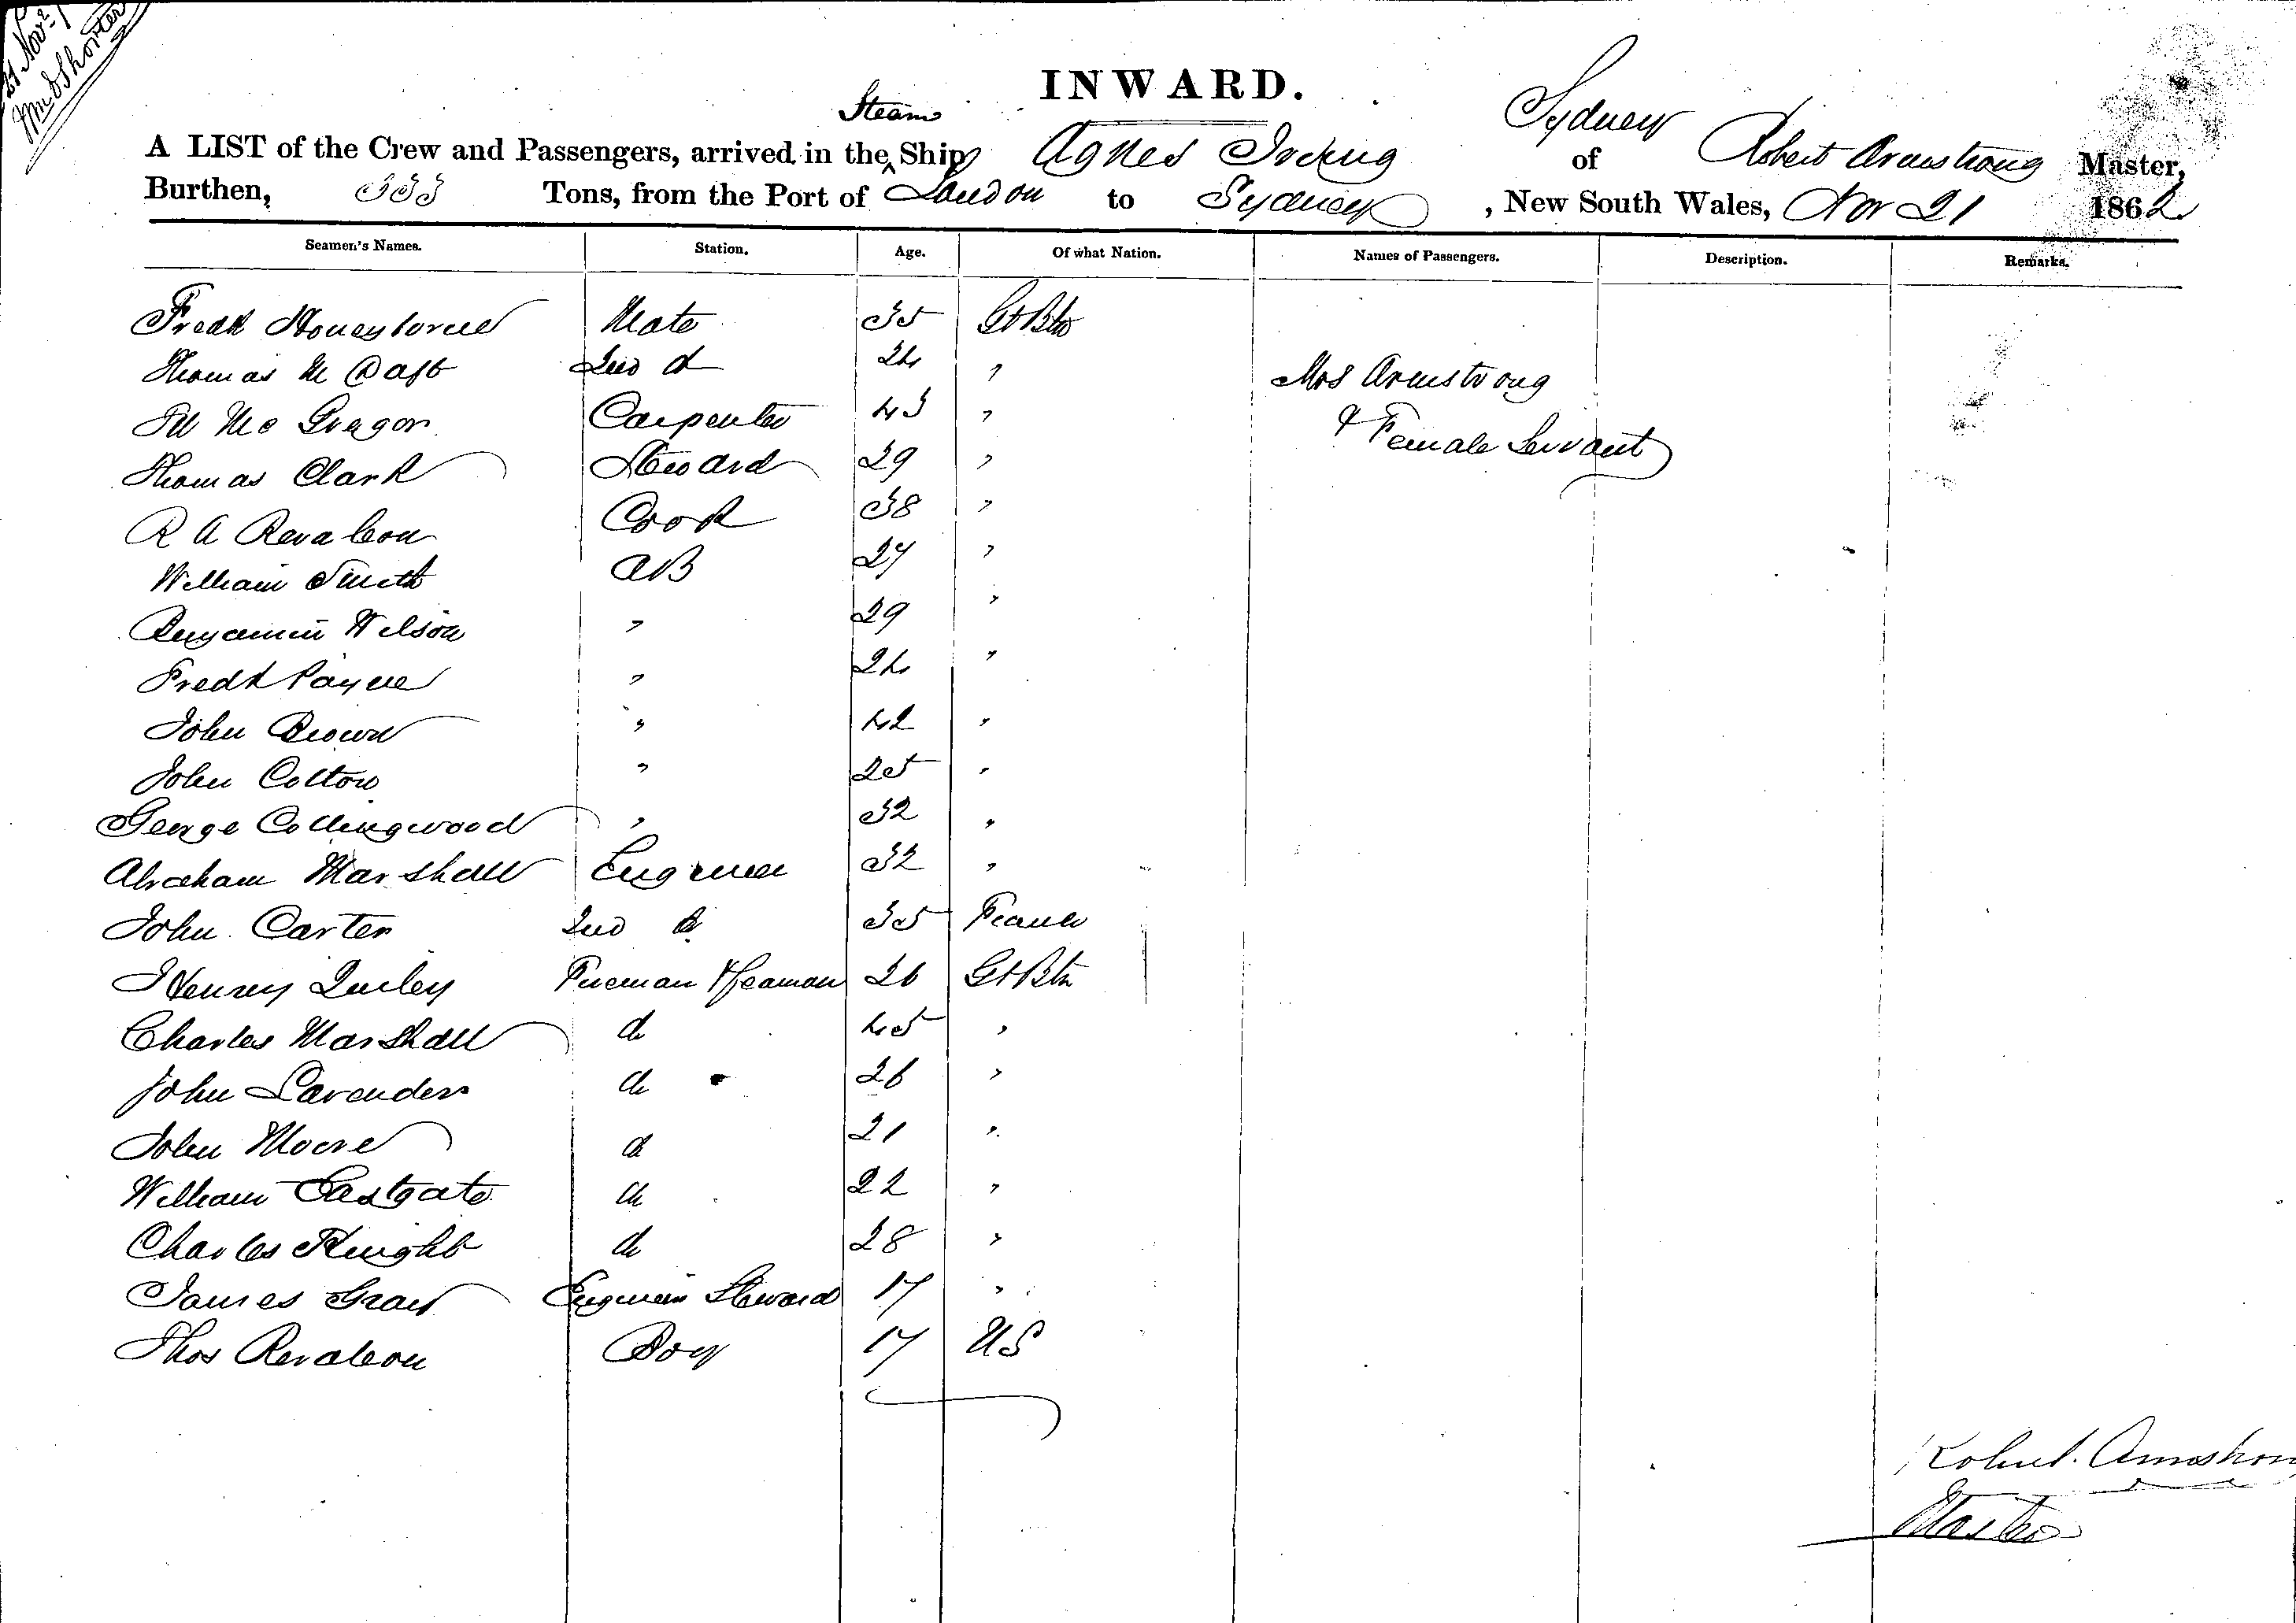 21 Novr
Wm D Shorter
INWARD.
Steam
Sydney
A LIST of the Crew and Passengers, arrived in the Ship Agnes Irving of Robert Armstrong Master,
Burthen, 333 Tons, from the Port of London to Sydney, New South Wales, Nov 21 1862
Seamen's Names. Station. Age. Of what Nation. Names of Passengers. Description. Remarks.
Fredk Mate 35 Gt Btn
Thomas 2nd do 24 "
Mrs Armstrong
Mc Gregor Carpenter 43 "
& Female Servant
Thomas Clark Steward 29 "
R A Revaleon Cook 38 "
William Smith AB 27 "
Benjamin Wilson " 29 "
Fredk Payne " 24 "
John Brown " 42 "
John Colton " 25 "
George Collingwood " 32 "
Abraham Marshall Engineer 32 "
John Carter 2nd do 35 France
Henry Fireman & Seaman 26 Gt Btn
Charles Marshall do 45 "
John Lavender do 26 "
John Moore do 21 "
William Eastgate do 22 "
Charles Knight do 28 "
James Gray Engineers Steward 17 "
Thos Revaleon Boy 17 US
Robert Armstrong
Master